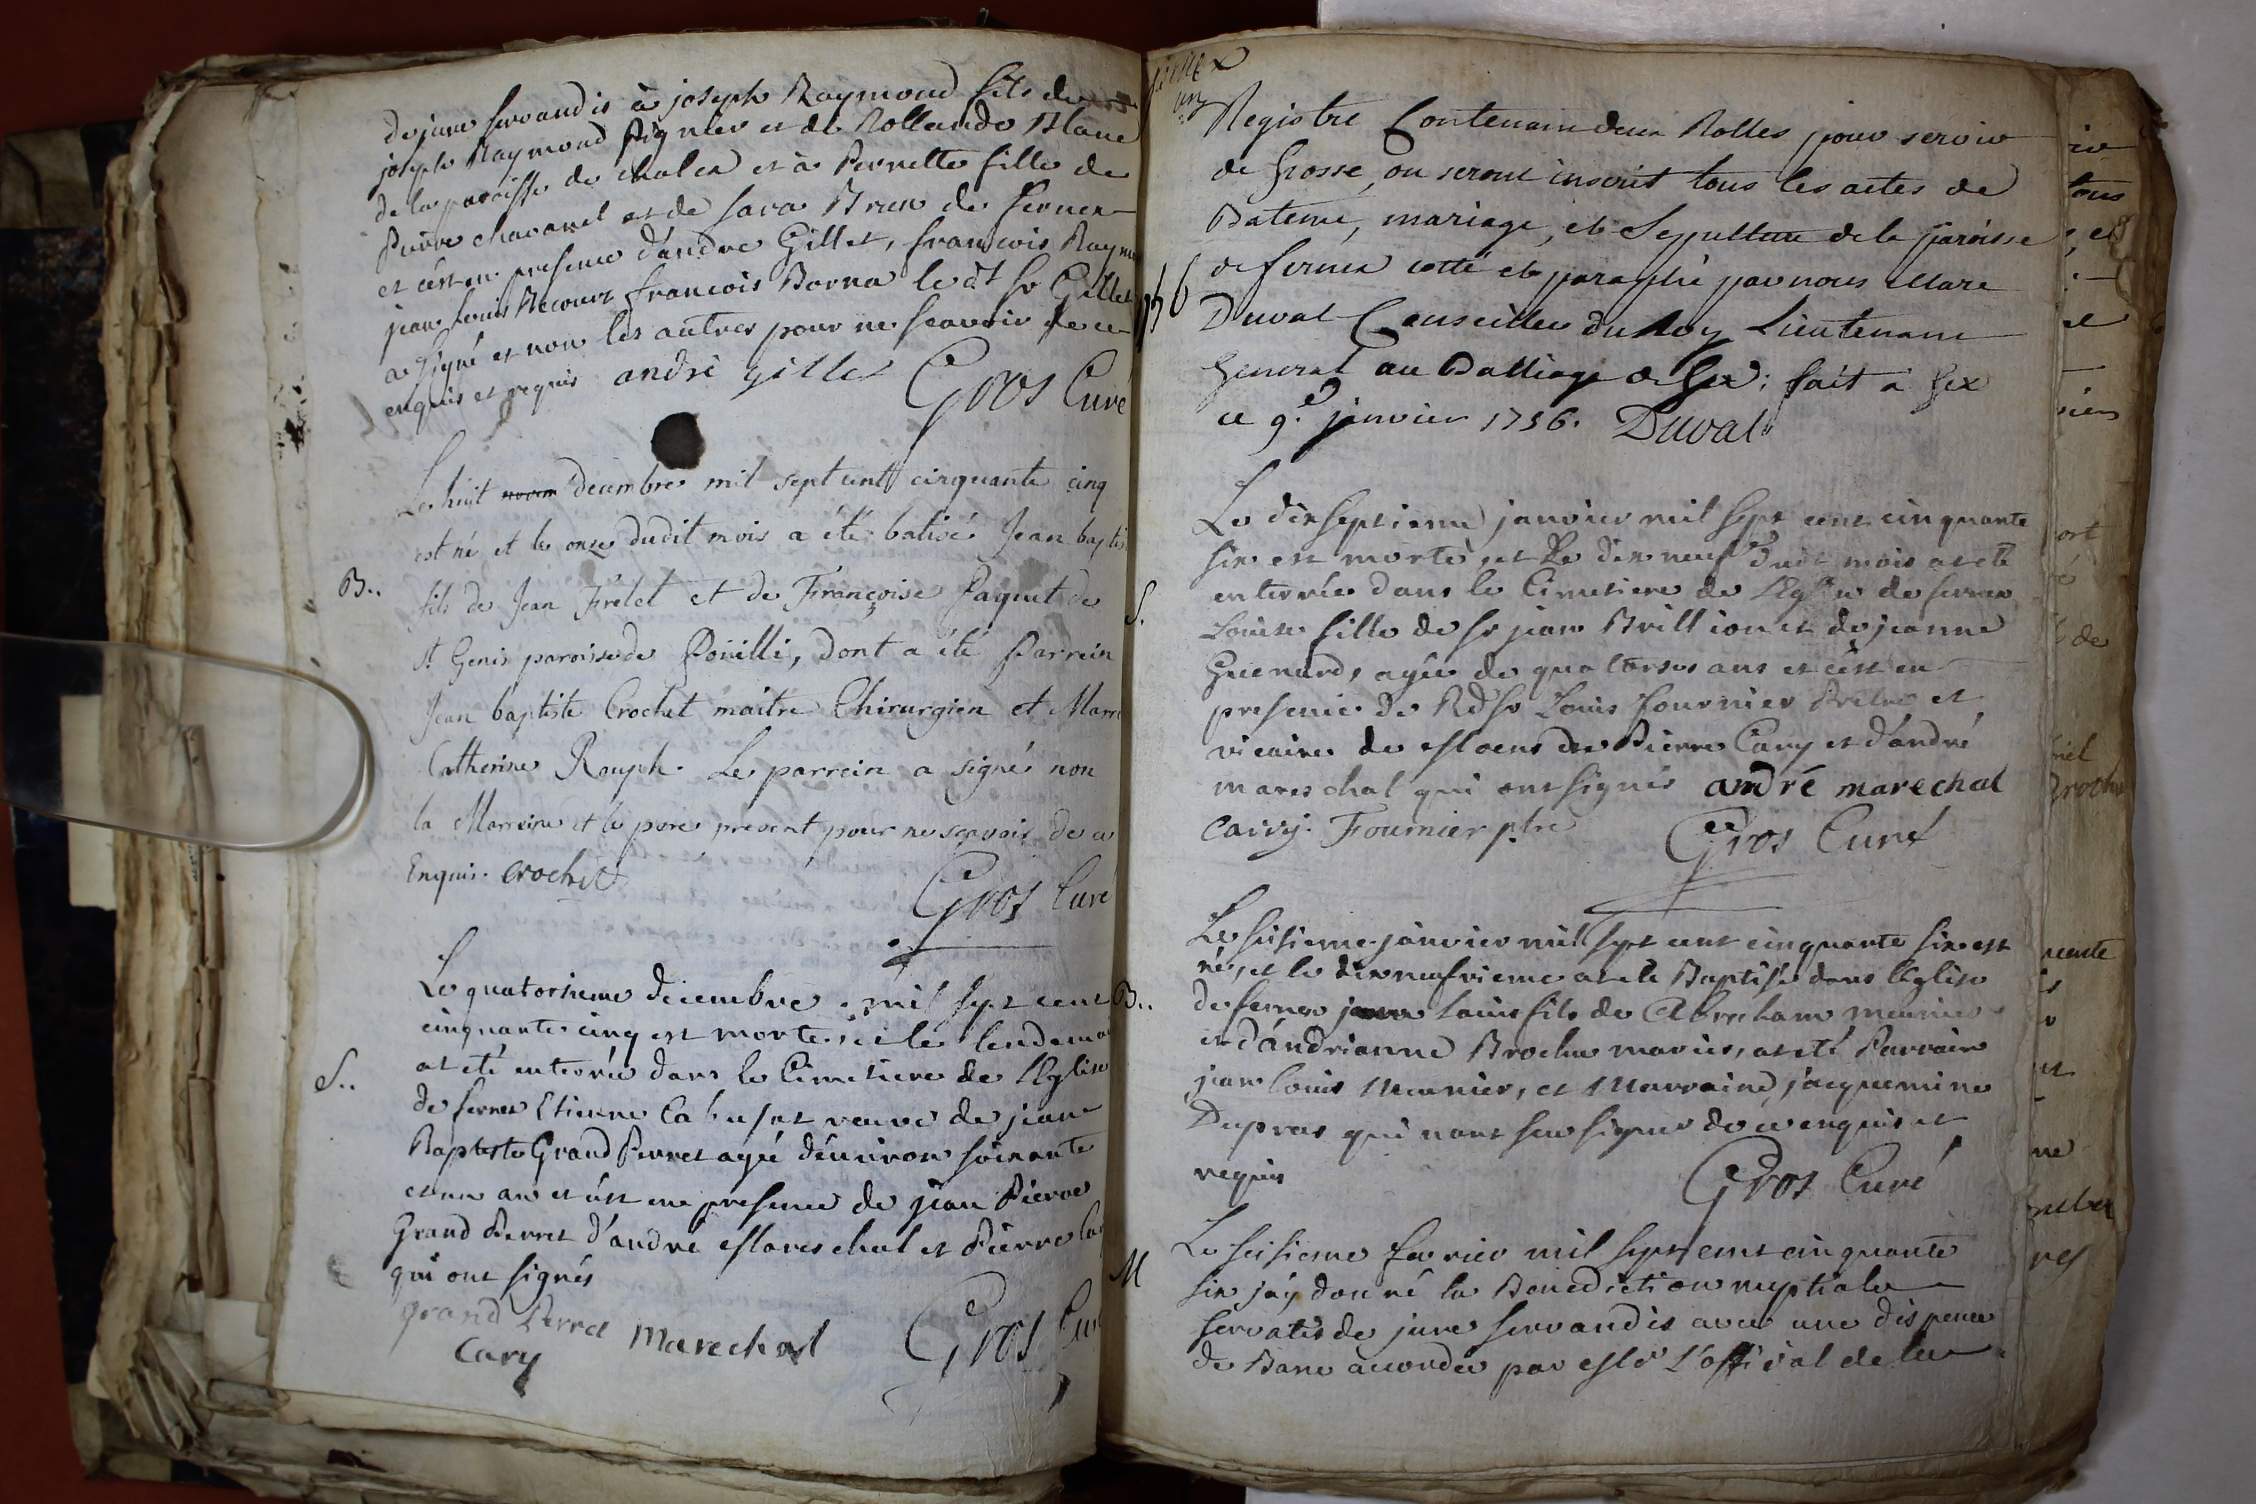 de jure servandis à joseph Raymond fils de
joseph Raymond Pignier et de Rollande Blanc
de la paroisse de chalex et à Pernette fille de
Pierre chavanel et de sara Brun de fernex
et c'est en presence d'andre Gillet, francois Raym
jean louis Recourt francois Borna le dt Sr Gillet
a signé et non les autres pour ne scavoir de ce
enquis et requis andré gillet Gros Curé
Le huit decembre mil sept cent cinquante cinq
est né et le onze dudit mois a été batisé Jean baptis
B..
fils de Jean Frélet et de Françoise Paquet de
St Genis paroisse de Pouilli, dont a été Parrein
Jean baptiste Crochet maitre Chirurgien et Marr
Catherine Rouph. Le parrein a signé non
la Marreine et le pere present pour ne sçavoir de ce
Enquis. crochet
Gros Curé
Le quatorsieme decembre mil sept cent
cinquante cinq est morte, et le lendemai
a été enterrée dans le Cimetiere de l'Eglise
S..
de fernex Etienne Cabuset veuve de jean
Baptiste Grand Perret agé d'environ soixante
et un an et c'est en presence de jean Pierre
Grand Perret d'andre Mareschal et Pierre Ca
qui ont signés
grand Perret Marechal Gros Cur
Cary
feuillex
un
Registre Contenant deux Rolles pour servir
de Grosse, ou seront inscrit tous les actes de
Bateme, mariage, et Sepulture de la paroisse
de fernex cotté et paraphé par nous Marc
1756
Duval Conseiller du Roy Lieutenant
General au Balliage de Gex; fait à Gex
ce 9e janvier 1756. Duval
Le dixseptieme janvier mil sept cent cinquante
six est morte, et le dix neuf dudt mois a eté
enterrée dans le Cimetiere de l'Eglise de fernex
S.
Louise fille de Sr jean Brillion et de jeanne
Guenard, agée de quatorses ans et c'est en
presence de Rd Sr Louis fournier Prêtre et
vicaire de Moens de Pierre Cary et d'andré
mareschal qui ont signés andré marechal
Cary. Fournier ptre Gros Curé
Le seisieme janvier mil sept cent cinquante six est
né, et le dixneufvieme a eté Baptisé dans l'Eglise
B..
de fernex jean louis fils de Abraham meunier
et d'Andrianne Brochu mariés, a eté Parrain
jean louis Meunier, et Marraine jacquemine
Dupras qui n'ont sceu signer de ce enquis et
requis
Gros Curé
Le seisieme fevrier mil sept cent cinquante
M
six j'ay donné la Benediction nuptiale
servatis de jure servandis avec une dispence
de Banc accordée par Mr L'official de la